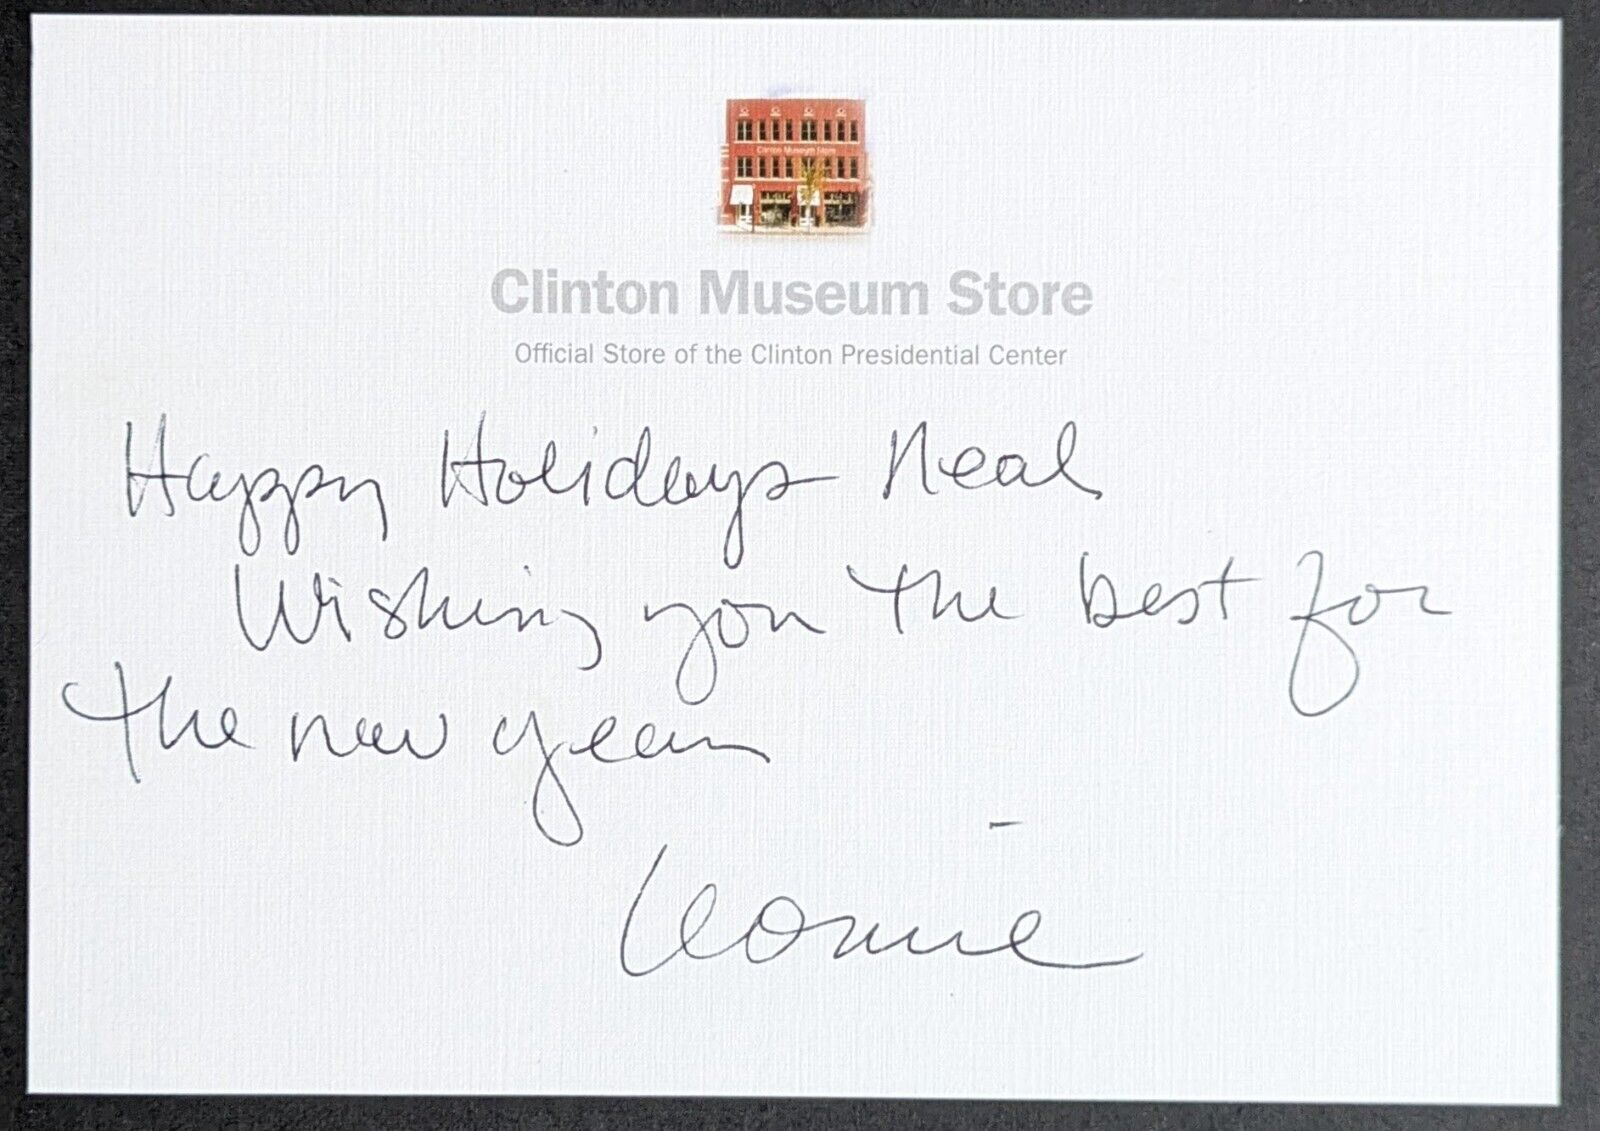 Clinton Museum Store
Clinton Museum Store
Official Store of the Clinton Presidential Center
Happy Holidays Neal
Wishing you the best for
the new year